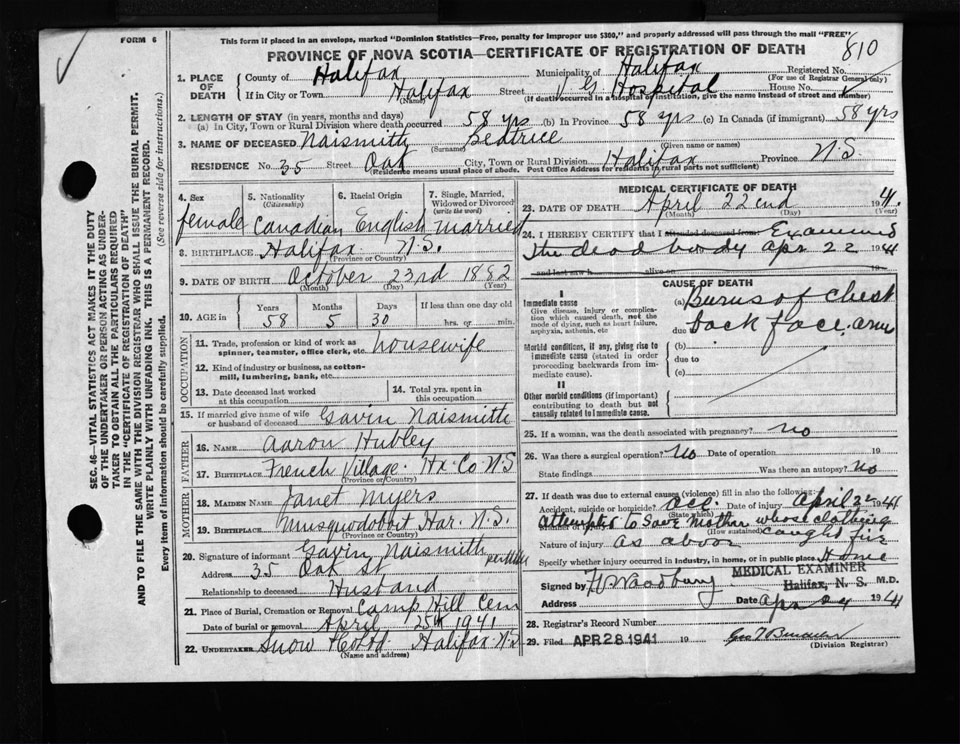 FORM 6
This form if placed in an envelope, marked "Dominion Statistics—Free, penalty for improper use $300," and properly addressed will pass through the mail "FREE"
PROVINCE OF NOVA SCOTIA—CERTIFICATE OF REGISTRATION OF DEATH
810
1. PLACE OF DEATH
County of Halifax Municipality of Halifax Registered No.
(For use of Registrar General only)
If in City or Town Halifax Street V G Hospital House No.
(Name) (If death occurred in a hospital or institution, give the name instead of street and number)
2. LENGTH OF STAY (in years, months and days)
(a) In City, Town or Rural Division where death occurred 58 yrs (b) In Province 58 yrs (c) In Canada (if immigrant) 58 yrs
3. NAME OF DECEASED Naismith Beatrice
(Surname) (Given name or names)
RESIDENCE No. 35 Street Oak City, Town or Rural Division Halifax Province N.S.
(Residence means usual place of abode. Post Office Address for residents in rural parts not sufficient)
4. Sex
female
5. Nationality
(Citizenship)
Canadian
6. Racial Origin
English
7. Single, Married, Widowed or Divorced
(write the word)
married
8. BIRTHPLACE Halifax N.S.
(Province or Country)
9. DATE OF BIRTH October 23rd 1882
(Month) (Day) (Year)
10. AGE in
Years Months Days If less than one day old
58 5 30 hrs. or min.
OCCUPATION
11. Trade, profession or kind of work as spinner, teamster, office clerk, etc. housewife
12. Kind of industry or business, as cotton-mill, lumbering, bank, etc.
13. Date deceased last worked at this occupation
14. Total yrs. spent in this occupation
15. If married give name of wife or husband of deceased Gavin Naismith
FATHER
16. NAME Aaron Hubley
17. BIRTHPLACE French Village. Hx Co N.S
(Province or Country)
MOTHER
18. MAIDEN NAME Janet Myers
19. BIRTHPLACE Musquodobit Har. N.S.
(Province or Country)
20. Signature of informant Gavin Naismith
Address 35 Oak St
Relationship to deceased Husband
21. Place of Burial, Cremation or Removal Camp Hill Cem
Date of burial or removal April 25th 1941
22. UNDERTAKER Snow & Co Ltd Halifax N.S
(Name and address)
MEDICAL CERTIFICATE OF DEATH
23. DATE OF DEATH April 22nd 1941
(Month) (Day) (Year)
24. I HEREBY CERTIFY that I attended deceased from Examined
the dead body Apr 22 1941
and last saw h alive on 19
CAUSE OF DEATH
I
Immediate cause
Give disease, injury or complication which caused death, not the mode of dying, such as heart failure, asphyxia, asthenia, etc
(a) Burns of chest
due to back face. arm
Morbid conditions, if any, giving rise to immediate cause (stated in order proceeding backwards from immediate cause).
(b)
due to
(c)
II
Other morbid conditions (if important) contributing to death but not causally related to immediate cause.
25. If a woman, was the death associated with pregnancy? no
26. Was there a surgical operation? No Date of operation 19
State findings Was there an autopsy? no
27. If death was due to external causes (violence) fill in also the following:
Accident, suicide or homicide? acc. Date of injury April 22 1941
(State which)
attempted to save mother whose clothing
(How sustained) caught fire
Nature of injury as above
Specify whether injury occurred in industry, in home, or in public place Home
Signed by MEDICAL EXAMINER
Halifax, N. S. M.D.
Address Date Apr 24 1941
28. Registrar's Record Number
29. Filed APR 28 1941 19
(Division Registrar)
SEC. 46—VITAL STATISTICS ACT MAKES IT THE DUTY
OF THE UNDERTAKER OR PERSON ACTING AS UNDER-
TAKER TO OBTAIN ALL THE PARTICULARS REQUIRED
IN THE "CERTIFICATE OF REGISTRATION OF DEATH"
AND TO FILE THE SAME WITH THE DIVISION REGISTRAR WHO SHALL ISSUE THE BURIAL PERMIT.
WRITE PLAINLY WITH UNFADING INK. THIS IS A PERMANENT RECORD.
Every item of information should be carefully supplied. (See reverse side for instructions.)